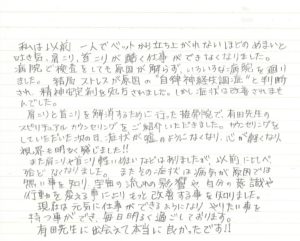 私は以前 一人でベットから立ち上がれないほどのめまいと
吐き気、肩こり、首こりが酷く仕事ができなくなりました。
病院で検査をしても原因が解らず、いろいろな病院を廻り
ました。 結局 ストレスが原因の"自律神経失調症"と判断
され、精神安定剤を処方されました。しかし症状は改善されませ
んでした。
肩こりと首こりを解消するために行った接骨院で、有田先生の
スピリチュアルカウンセリングをご紹介いただきました。カウンセリングを
していただいた次の日、症状が嘘のようになくなり、心が軽くなり
視界も明るく解しました!!
また肩こりや首こり軽いめまいなどはありましたが、以前に比べ
殆どなくなりました。 またその症状は病気が原因では
無い事を知り、宇宙の流れの影響や自分の意識や
行動を変える事によりもっと改善する事を知りました。
現在は元気に仕事ができるようになり、やりたい事を
持つ事ができ、毎日明るく過ごしております。
有田先生に出会えて本当に良かったです!!